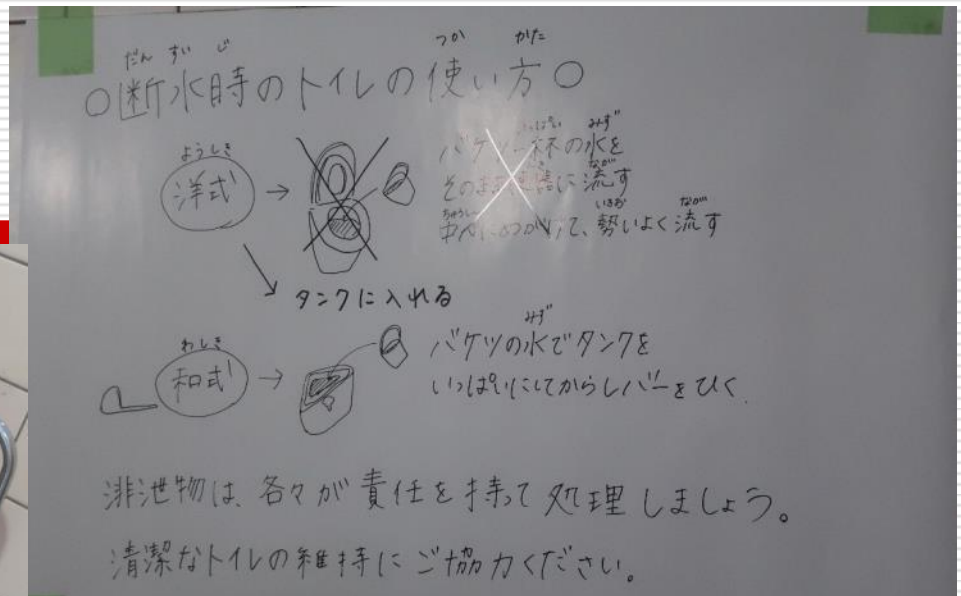 だん すい じ つか かた
○断水時のトイレの使い方○
ようしき
洋式 →
いっぱい みず
バケツ一杯の水を
なが
そのまま便器に流す
ちゅうしん いきお なが
中心にめがけて、勢いよく流す
タンクに入れる
わしき
和式 →
みず
バケツの水でタンクを
いっぱいにしてからレバーをひく
排泄物は、各々が責任を持って処理しましょう。
清潔なトイレの維持にご協力ください。